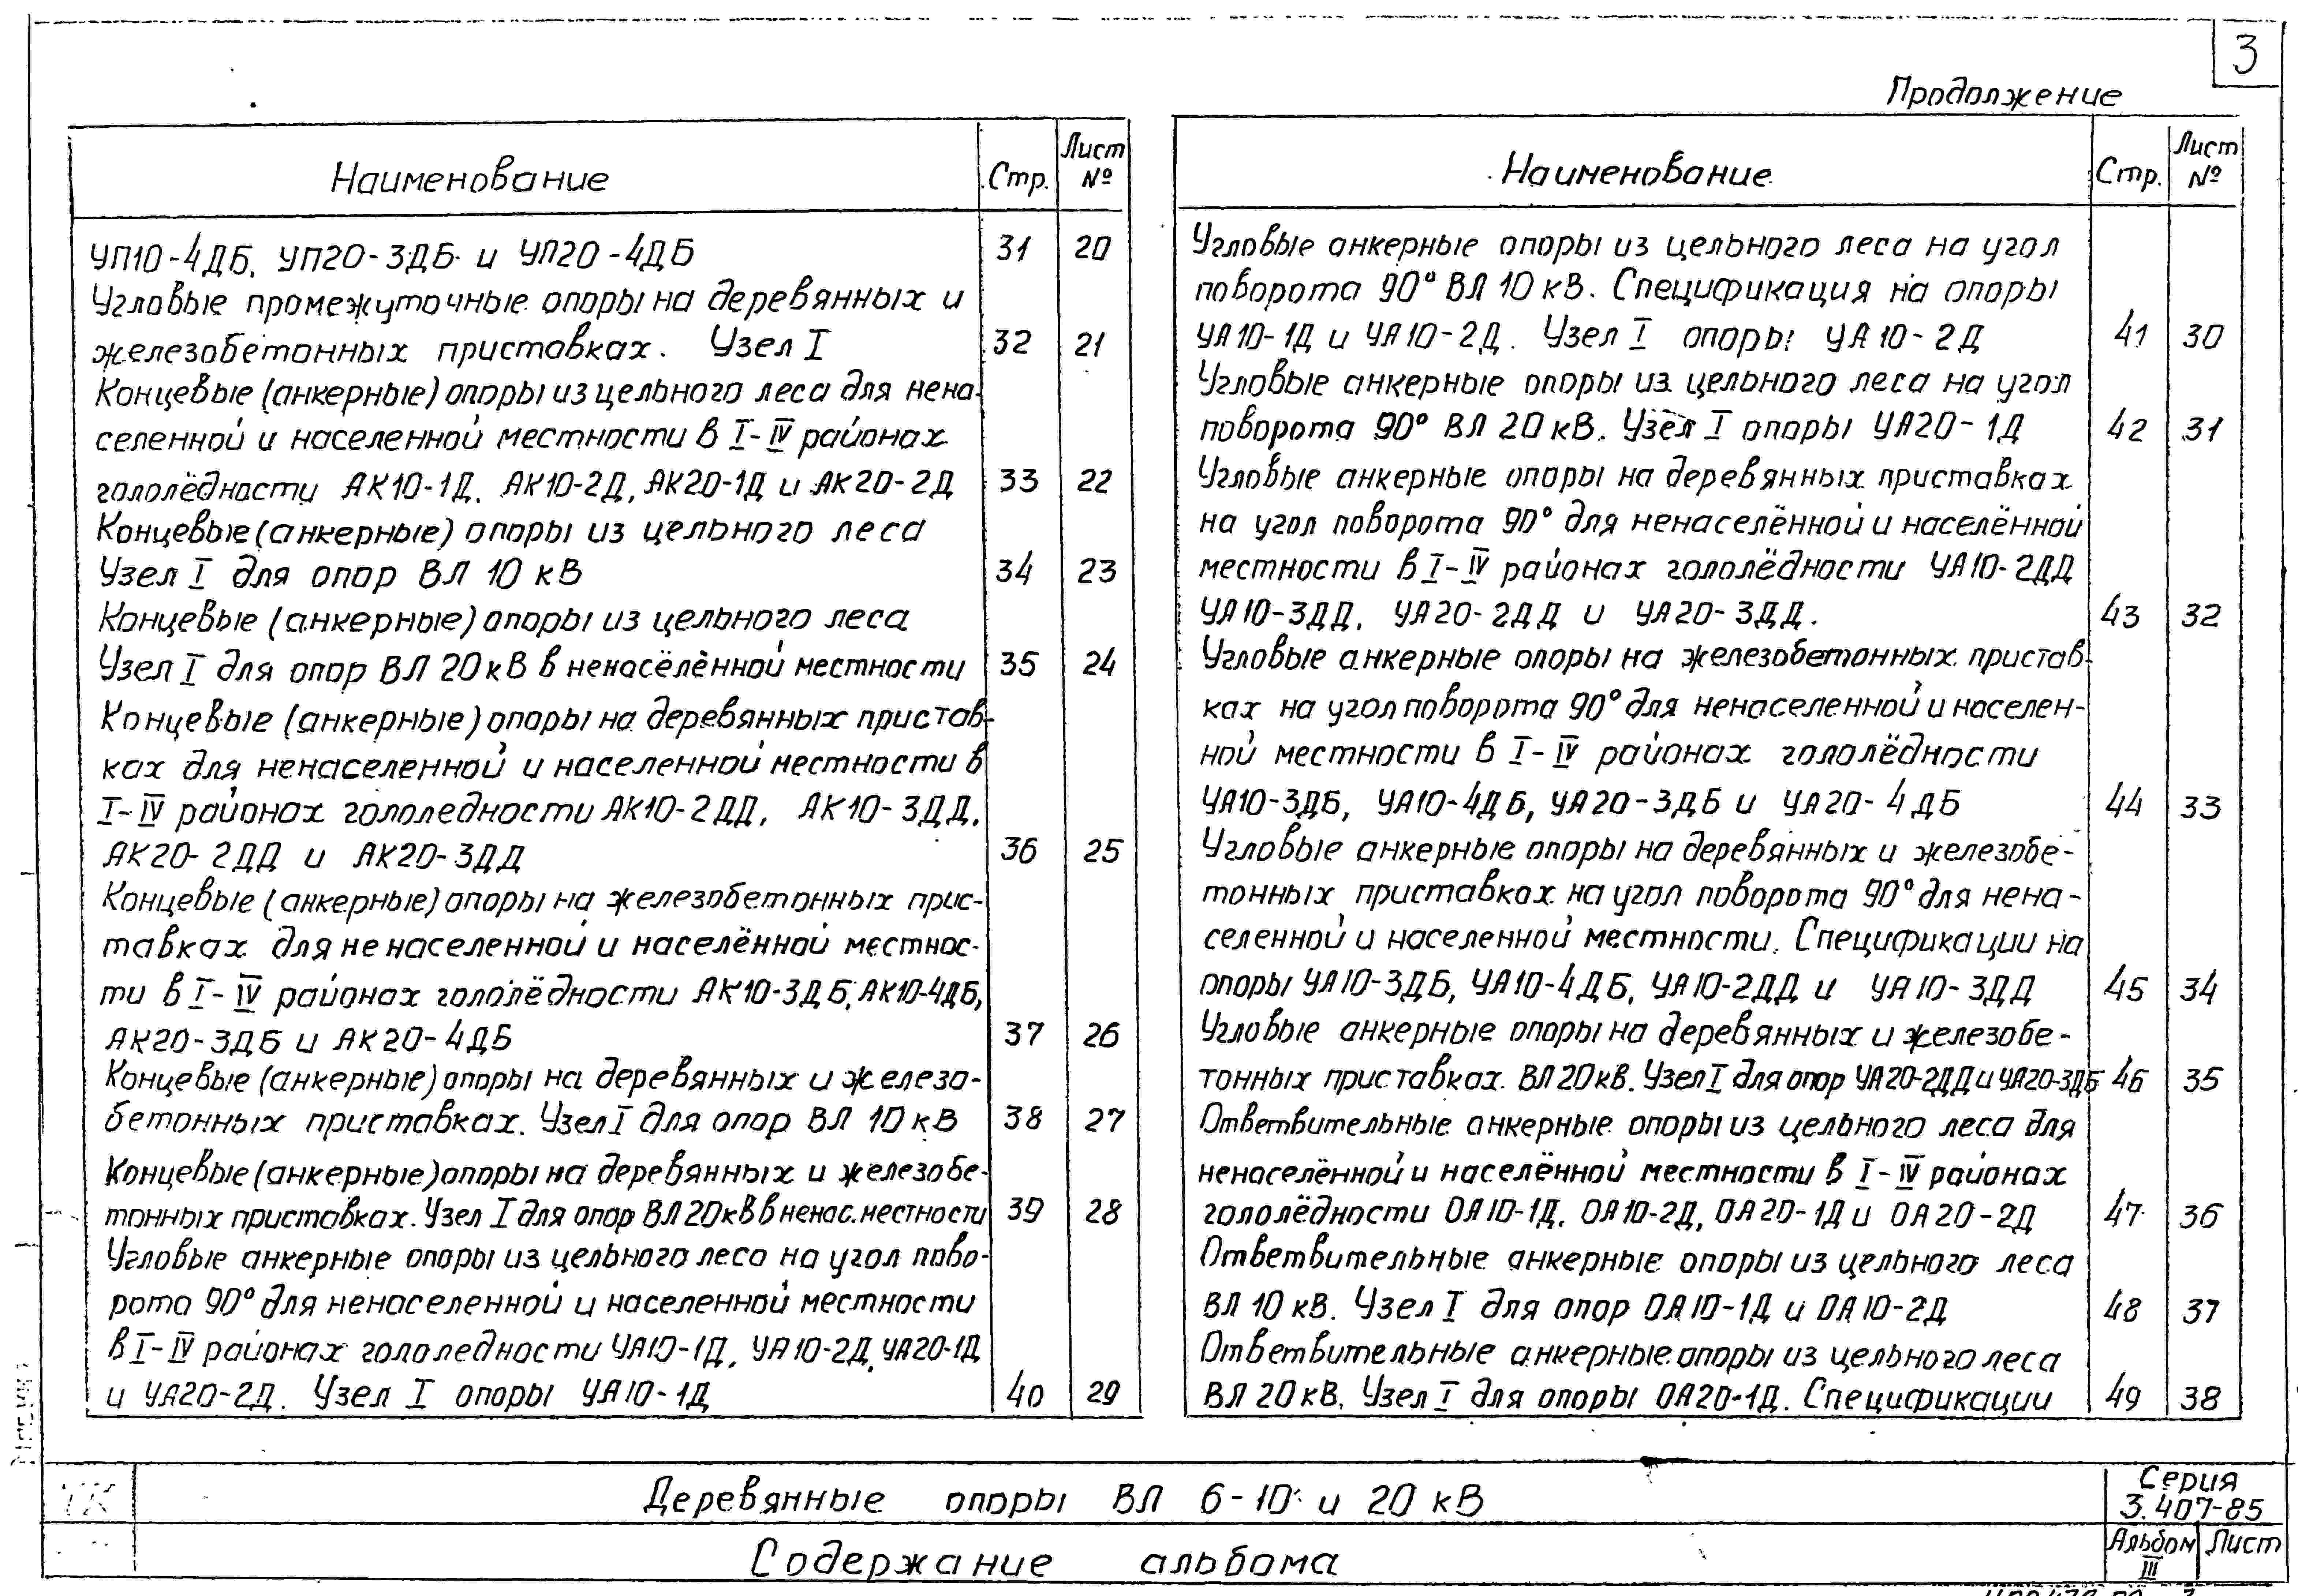 3
Продолжение
Наименование Стр. Лист №
УП10-4ДБ, УП20-3ДБ и УП20-4ДБ 31 20
Угловые промежуточные опоры на деревянных и
железобетонных приставках. Узел I 32 21
Концевые (анкерные) опоры из цельного леса для нена-
селенной и населенной местности в I-IV районах
гололёдности АК10-1Д, АК10-2Д, АК20-1Д и АК20-2Д 33 22
Концевые (анкерные) опоры из цельного леса
Узел I для опор ВЛ 10 кВ 34 23
Концевые (анкерные) опоры из цельного леса
Узел I для опор ВЛ 20 кВ в ненасёлённой местности 35 24
Концевые (анкерные) опоры на деревянных пристав-
ках для ненаселенной и населенной местности в
I-IV районах гололедности АК10-2ДД, АК10-3ДД,
АК20-2ДД и АК20-3ДД 36 25
Концевые (анкерные) опоры на железобетонных прис-
тавках для ненаселенной и населённой местнос-
ти в I-IV районах гололёдности АК10-3ДБ, АК10-4ДБ,
АК20-3ДБ и АК20-4ДБ 37 26
Концевые (анкерные) опоры на деревянных и железо-
бетонных приставках. Узел I для опор ВЛ 10 кВ 38 27
Концевые (анкерные) опоры на деревянных и железобе-
тонных приставках. Узел I для опор ВЛ 20кВ в ненас. местности 39 28
Угловые анкерные опоры из цельного леса на угол пово-
рота 90° для ненаселенной и населенной местности
в I-IV районах гололедности УА10-1Д, УА10-2Д, УА20-1Д
и УА20-2Д. Узел I опоры УА10-1Д 40 29
Наименование Стр. Лист №
Угловые анкерные опоры из цельного леса на угол
поворота 90° ВЛ 10 кВ. Спецификация на опоры
УА10-1Д и УА10-2Д. Узел I опоры УА10-2Д 41 30
Угловые анкерные опоры из цельного леса на угол
поворота 90° ВЛ 20 кВ. Узел I опоры УА20-1Д 42 31
Угловые анкерные опоры на деревянных приставках
на угол поворота 90° для ненаселённой и населённой
местности в I-IV районах гололёдности УА10-2ДД
УА10-3ДД, УА20-2ДД и УА20-3ДД. 43 32
Угловые анкерные опоры на железобетонных пристав-
ках на угол поворота 90° для ненаселенной и населен-
ной местности в I-IV районах гололёдности
УА10-3ДБ, УА10-4ДБ, УА20-3ДБ и УА20-4ДБ 44 33
Угловые анкерные опоры на деревянных и железобе-
тонных приставках на угол поворота 90° для нена-
селенной и населенной местности. Спецификации на
опоры УА10-3ДБ, УА10-4ДБ, УА10-2ДД и УА10-3ДД 45 34
Угловые анкерные опоры на деревянных и железобе-
тонных приставках. ВЛ 20 кВ. Узел I для опор УА20-2ДД и УА20-3ДБ 46 35
Ответвительные анкерные опоры из цельного леса для
ненаселённой и населённой местности в I-IV районах
гололёдности ОА10-1Д, ОА10-2Д, ОА20-1Д и ОА20-2Д 47 36
Ответвительные анкерные опоры из цельного леса
ВЛ 10 кВ. Узел I для опор ОА10-1Д и ОА10-2Д 48 37
Ответвительные анкерные опоры из цельного леса
ВЛ 20 кВ. Узел I для опоры ОА20-1Д. Спецификации 49 38
ТК
Деревянные опоры ВЛ 6-10 и 20 кВ
Серия
3.407-85
Содержание альбома
Альбом III Лист